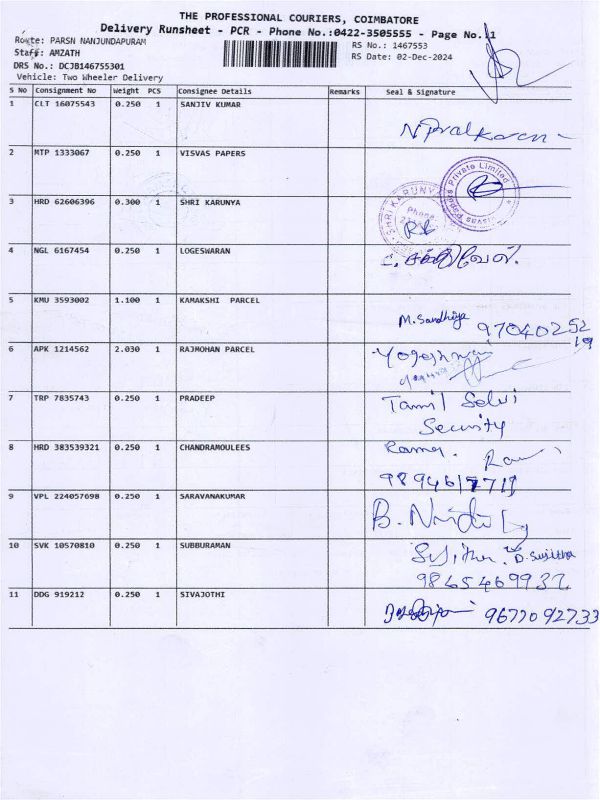 THE PROFESSIONAL COURIERS, COIMBATORE
Delivery Runsheet - PCR - Phone No.:0422-3505555 - Page No.:1
Route: PARSN NANJUNDAPURAM
Staff: AMZATH
RS No.: 1467553
DRS No.: DCJB146755301
RS Date: 02-Dec-2024
Vehicle: Two Wheeler Delivery
S No Consignment No Weight PCS Consignee Details Remarks Seal & Signature
1 CLT 16075543 0.250 1 SANJIV KUMAR
2 MTP 1333067 0.250 1 VISVAS PAPERS
Visvas Papers Private Limited
3 HRD 62606396 0.300 1 SHRI KARUNYA
SHRI KARUNYA
Phone
4 NGL 6167454 0.250 1 LOGESWARAN
5 KMU 3593002 1.100 1 KAMAKSHI PARCEL
M. Sandhiya 97040252
19
6 APK 1214562 2.030 1 RAJMOHAN PARCEL
7 TRP 7835743 0.250 1 PRADEEP
Tamil Selvi
Security
8 HRD 383539321 0.250 1 CHANDRAMOULEES
9 VPL 224057698 0.250 1 SARAVANAKUMAR
10 SVK 10570810 0.250 1 SUBBURAMAN
D. Sujitha
9865469937
11 DDG 919212 0.250 1 SIVAJOTHI
9677092733